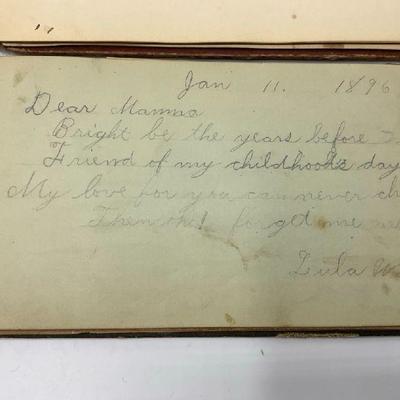 Jan 11. 1896
Dear Mamma
Bright be the years before
Friend of my childhoods day
My love for you can never
forget me
Lula